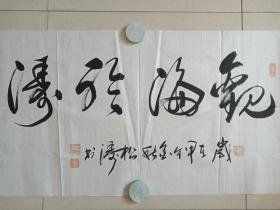 觀海於濤
歲在甲午金秋松濤书